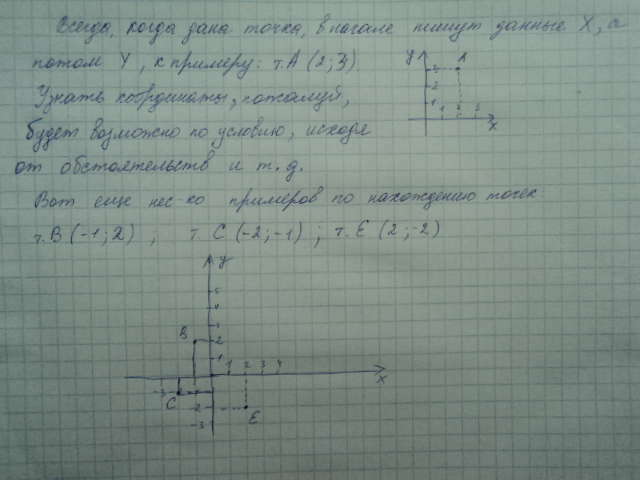 Всегда, когда дана точка, в начале пишут данные X, а
потом Y, к примеру: т. A (2; 3)
Узнать координаты, пожалуй,
будет возможно по условию, исходя
от обстоятельств и т.д.
Вот еще нес-ко примеров по нахождению точек
т. B (-1; 2) ; т. C (-2; -1) ; т. E (2; -2)
y
A
3
2
1
1 2 3
x
y
5
4
3
B 2
1
1 2 3 4
x
-3 -2 -1
C
-2
E
-3